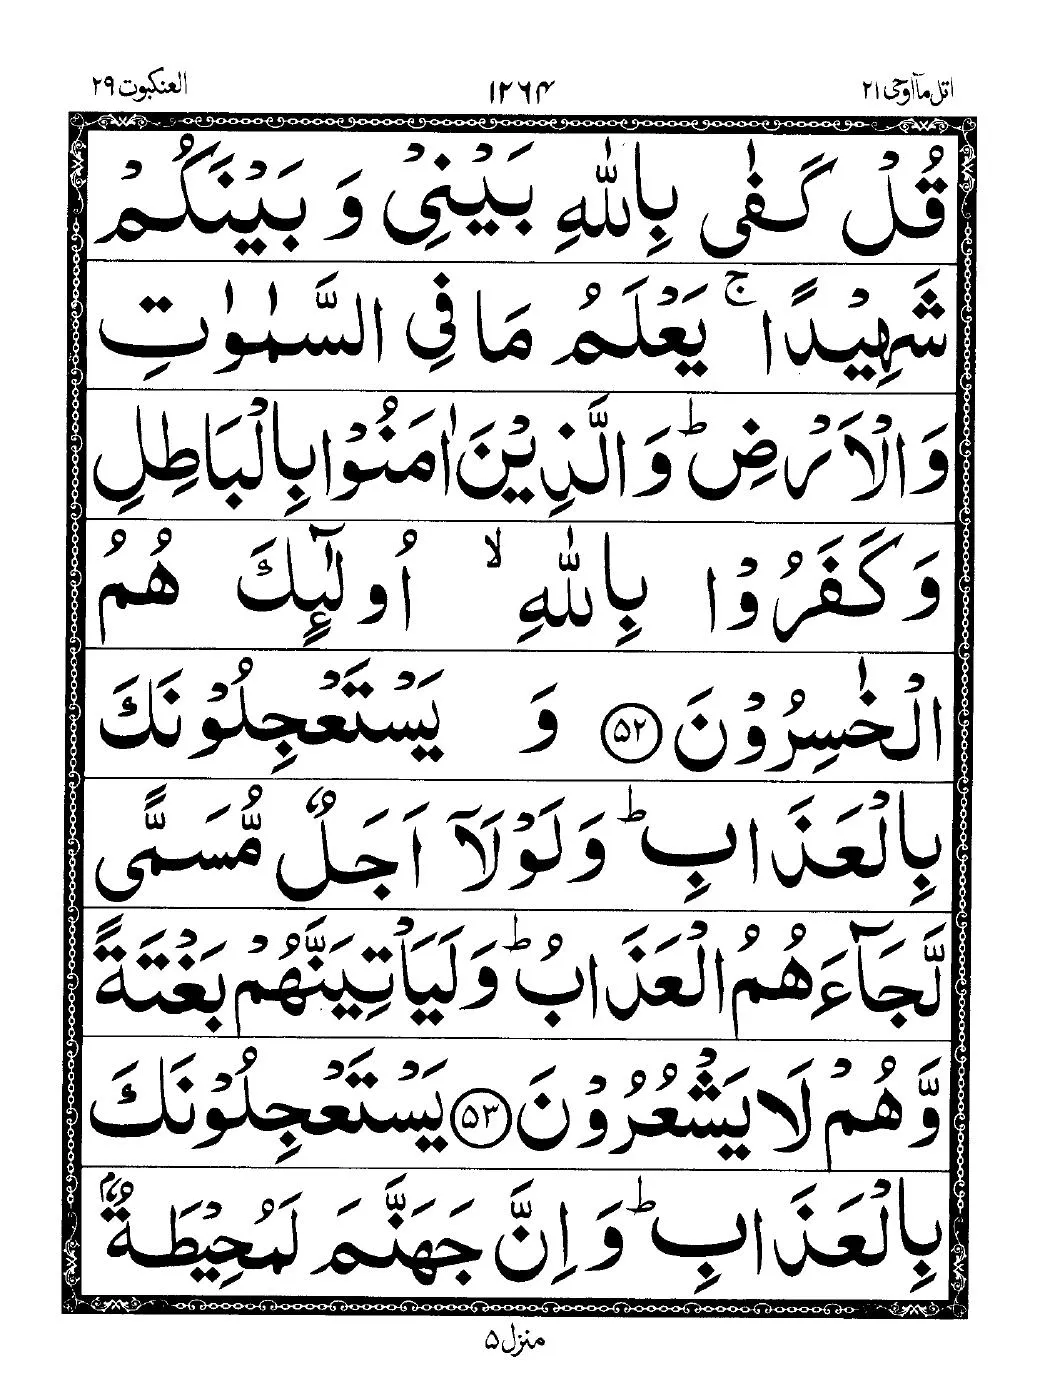 اتل مآاوحی ۲۱
۱۲۶۴
العنکبوت ۲۹
قُلْ كَفٰى بِاللّٰهِ بَيْنِيْ وَ بَيْنَكُمْ
شَهِيْدًا ۚ يَعْلَمُ مَا فِي السَّمٰوٰتِ
وَالْاَرْضِ ؕ وَالَّذِيْنَ اٰمَنُوْا بِالْبَاطِلِ
وَكَفَرُوْا بِاللّٰهِ ۙ اُولٰٓئِكَ هُمُ
الْخٰسِرُوْنَ ۵۲ وَ يَسْتَعْجِلُوْنَكَ
بِالْعَذَابِ ؕ وَلَوْلَاۤ اَجَلٌ مُّسَمًّى
لَّجَآءَهُمُ الْعَذَابُ ؕ وَلَيَاْتِيَنَّهُمْ بَغْتَةً
وَّهُمْ لَا يَشْعُرُوْنَ ۵۳ يَسْتَعْجِلُوْنَكَ
بِالْعَذَابِ ؕ وَاِنَّ جَهَنَّمَ لَمُحِيْطَةٌۢ
منزل ۵